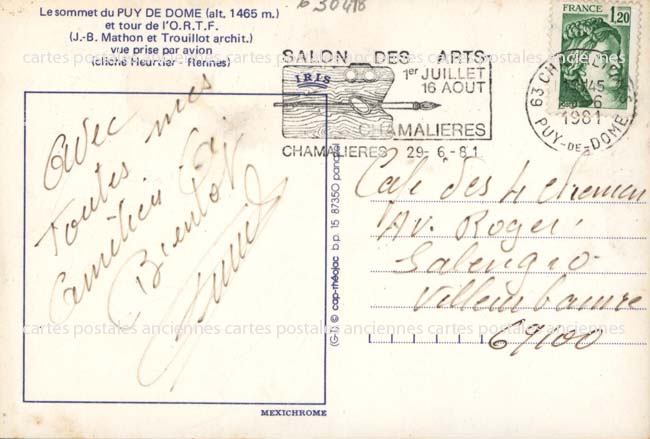 Le sommet du PUY DE DOME (alt. 1465 m.)
et tour de l'O.R.T.F.
(J.-B. Mathon et Trouillot archit.)
vue prise par avion
(cliché Heurtier - Rennes)
630418
FRANCE
1,20
SALON DES ARTS
1er JUILLET
16 AOUT
CHAMALIERES
CHAMALIERES 29-6-81
63 CHAMALIERES
1981
PUY-DE-DOME
IRIS
Avec mes
toutes mes
Amitiés. A
Bientot
Cafe des 4 chemins
Av. Roger
Salengro
Villeurbanne
69100
(G-7) © cap-théojac b.p. 15 87350 panazol
cartes postales anciennes cartes postales anciennes cartes postales anciennes cartes postales anciennes
MEXICHROME